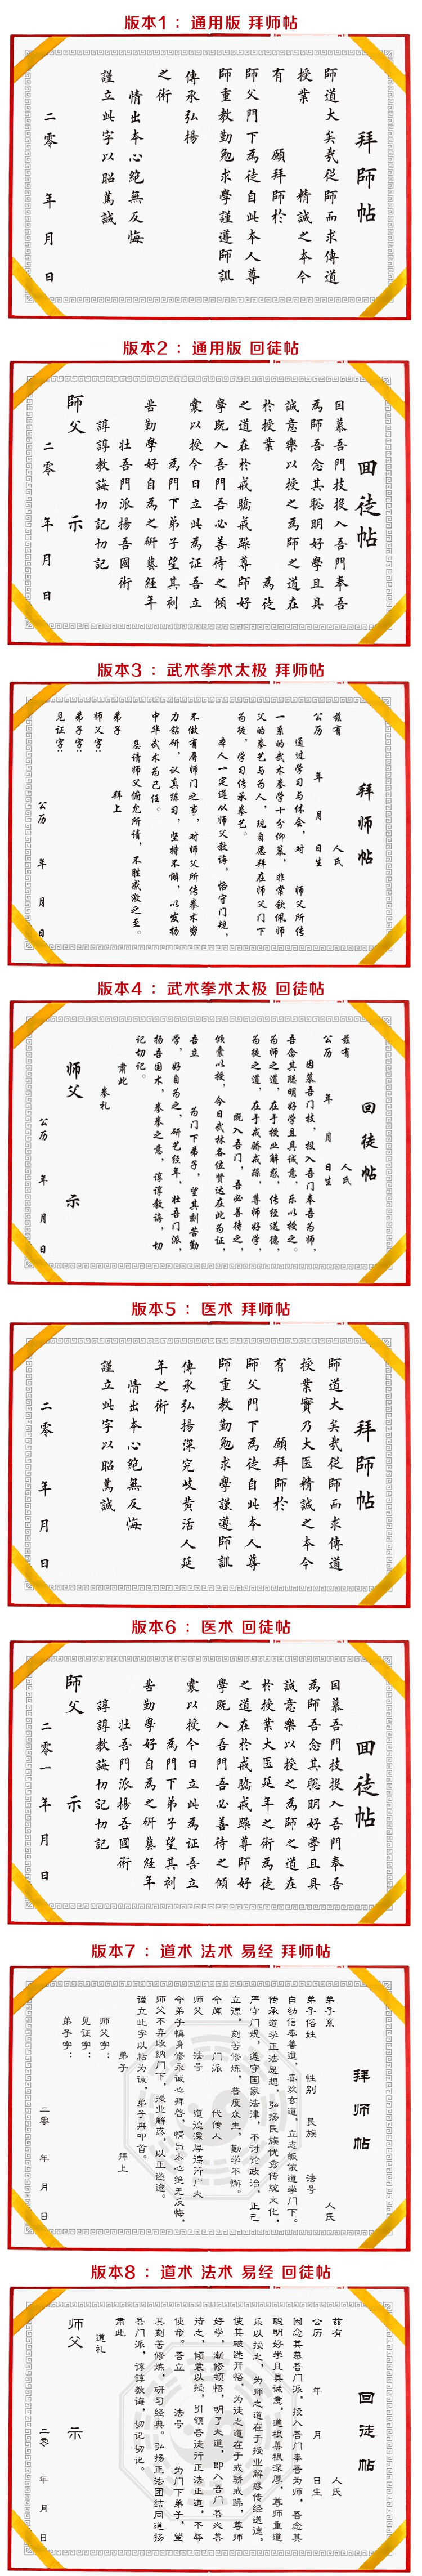 版本1 ： 通用版 拜师帖
拜師帖
師道大矣哉從師而求傳道
授業　　　精誠之本今
有　　　願拜師於
師父門下為徒自此本人尊
師重教勤勉求學謹遵師訓
傳承弘揚
之術
情出本心絕無反悔
謹立此字以昭萬誠
二零　年　月　日
版本2 ： 通用版 回徒帖
回徒帖
因慕吾門技投入吾門奉吾
為師吾念其聪明好學且具
誠意樂以授之為師之道在
於授業　　　為徒
之道在於戒驕戒躁尊師好
學既入吾門吾必善待之傾
囊以授今日立此為证吾立
為門下弟子望其刻
苦勤學好自為之研藝經年
壮吾門派揚吾國術
諄諄教誨切記切記
師父　　示
二零　年　月　日
版本3 ： 武术拳术太极 拜师帖
拜师帖
兹有　　　人氏
公历　年　月　日生
通过学习与体会，对　师父所传
一系的武术拳学十分仰慕，非常钦佩师
父的拳艺与为人，现自愿拜在师父门下
为徒，学习传承拳艺。
本人一定遵从师父教诲，恪守门规，
不做有辱师门之事，对师父所传拳术努
力钻研，认真练习，坚持不懈，以发扬
中华武术为己任。
恳请师父俯允所请，不胜感激之至。
弟子　　拜上
师父字：
弟子字：
见证字：
公历　年　月　日
版本4 ： 武术拳术太极 回徒帖
回徒帖
兹有　　　人氏
公历　年　月　日生
因慕吾门技，投入吾门奉吾为师，
吾念其聪明好学且具诚意，乐以授之。
为师之道，在于授业解惑，传经送德，
为徒之道，在于戒骄戒躁，尊师好学，
既入吾门，吾必善待之，
倾囊以授，今日武林各位贤达在此为证，
吾立　　为门下弟子，望其刻苦勤
学，好自为之，研艺经年，壮吾门派，
扬吾国术，拳拳之意，谆谆教诲，切
记切记。
肃此
拳礼
师父　　示
公历　年　月　日
版本5 ： 医术 拜师帖
拜師帖
師道大矣哉從師而求傳道
授業實乃大医精誠之本今
有　　　願拜師於
師父門下為徒自此本人尊
師重教勤勉求學謹遵師訓
傳承弘揚深究岐黄活人延
年之術
情出本心絕無反悔
謹立此字以昭萬誠
二零　年　月　日
版本6 ： 医术 回徒帖
回徒帖
因慕吾門技投入吾門奉吾
為師吾念其聪明好學且具
誠意樂以授之為師之道在
於授業大医延年之術為徒
之道在於戒驕戒躁尊師好
學既入吾門吾必善待之傾
囊以授今日立此為证吾立
為門下弟子望其刻
苦勤學好自為之研藝經年
壮吾門派揚吾國術
諄諄教誨切記切記
師父　　示
二零一　年　月　日
版本7 ： 道术 法术 易经 拜师帖
拜师帖
弟子系　　　人氏
弟子俗姓　性别　民族　法号
自幼信奉善道，喜欢玄道，立志皈依道学门下。
传承道学正法思想，弘扬民族优秀传统文化，
严守门规，遵守国家法律，不讨论政治。正己
立德，刻苦修炼，普度众生，勤学不懈。
今闻　门派　代传人
师父　法号　道德深厚德行广大
今弟子慎身修永诚心拜啓，情出本心绝无反悔，
师父不弃收纳门下，授业解惑，以正迷途。
谨立此字以帖为诚，弟子再叩首。
弟子　　拜上
师父字：
见证字：
弟子字：
二零　年　月　日
版本8 ： 道术 法术 易经 回徒帖
回徒帖
兹有　　　人氏
公历　年　月　日生
因念其慕吾门派，投入吾门奉吾为师，吾念其
聪明好学且具诚意，道根善根深厚，尊师重道
乐以授之，为师之道在于授业解惑传经送德，
使其破迷开悟，为徒之道在于戒骄戒躁，尊师
好学，渐修顿悟，明了大道，即入吾门吾必善
待之，倾囊以授，引领吾徒行正法正道，不辱
使命。吾立　法号　为门下弟子，望
其刻苦修炼，研习经典。弘扬正法团结同道扬
吾门派，谆谆教诲，切记切记。
肃此
道礼
师父　　示
二零　年　月　日